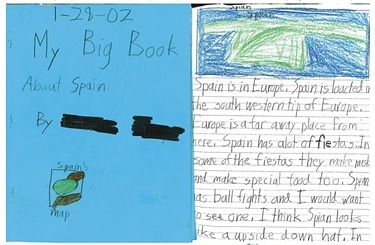 1-28-02
My Big Book
About Spain
By
Spain's
Map
Spian
Spain is in Europe. Spain is loacted in
the south western tip of Europe.
Europe is a far away place from
here. Spain has alot of fiestas. In
some of the fiestas they make
and make special food too. Spain
has ball fights and I would want
to see one. I think Spian looks
like a upside down hat. In